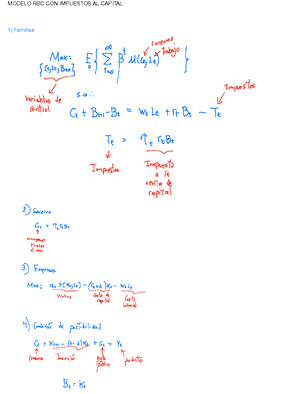 MODELO RBC CON IMPUESTOS AL CAPITAL
1) Familias
consumo
trabajo
Max: E₀ { ∑ βᵗ U(Cₜ, Lₜ) }
{Cₜ, Lₜ, Bₜ₊₁} t=0 ∞
variables de control
s.a:
Impuestos
Cₜ + Bₜ₊₁ - Bₜ = wₜ Lₜ + rₜ Bₜ - Tₜ
Tₜ = τₜ rₜ Bₜ
Impuestos
Impuesto a la renta de capital
2) Gobierno
Gₜ = τₜ rₜ Bₜ
3) Empresas
Max: aₜ F(Kₜ, Lₜ) - (rₜ + δ) Kₜ - wₜ Lₜ
ventas
Costo de capital
Costo laboral
4) Condición de factibilidad
Cₜ + Kₜ₊₁ - (1-δ) Kₜ + Gₜ = Yₜ
Consumo
Inversión
Gasto público
Bₜ = Kₜ